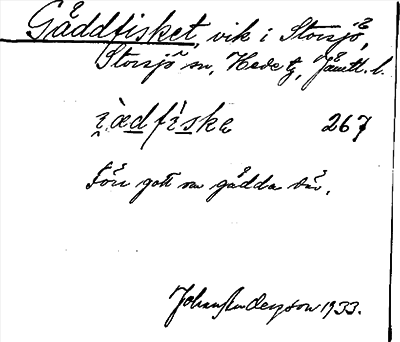 Gåddfisket, vik i Storsjö,
Storsjö sn, Hede tg, Jämtl. l.
i̯ædfìske 267
Förr gott om gädda där.
Johan Anderson 1933.